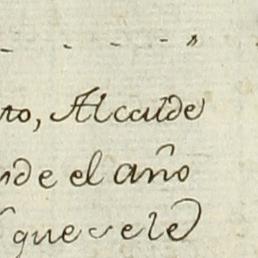 to, Alcalde
nde el año
que se le